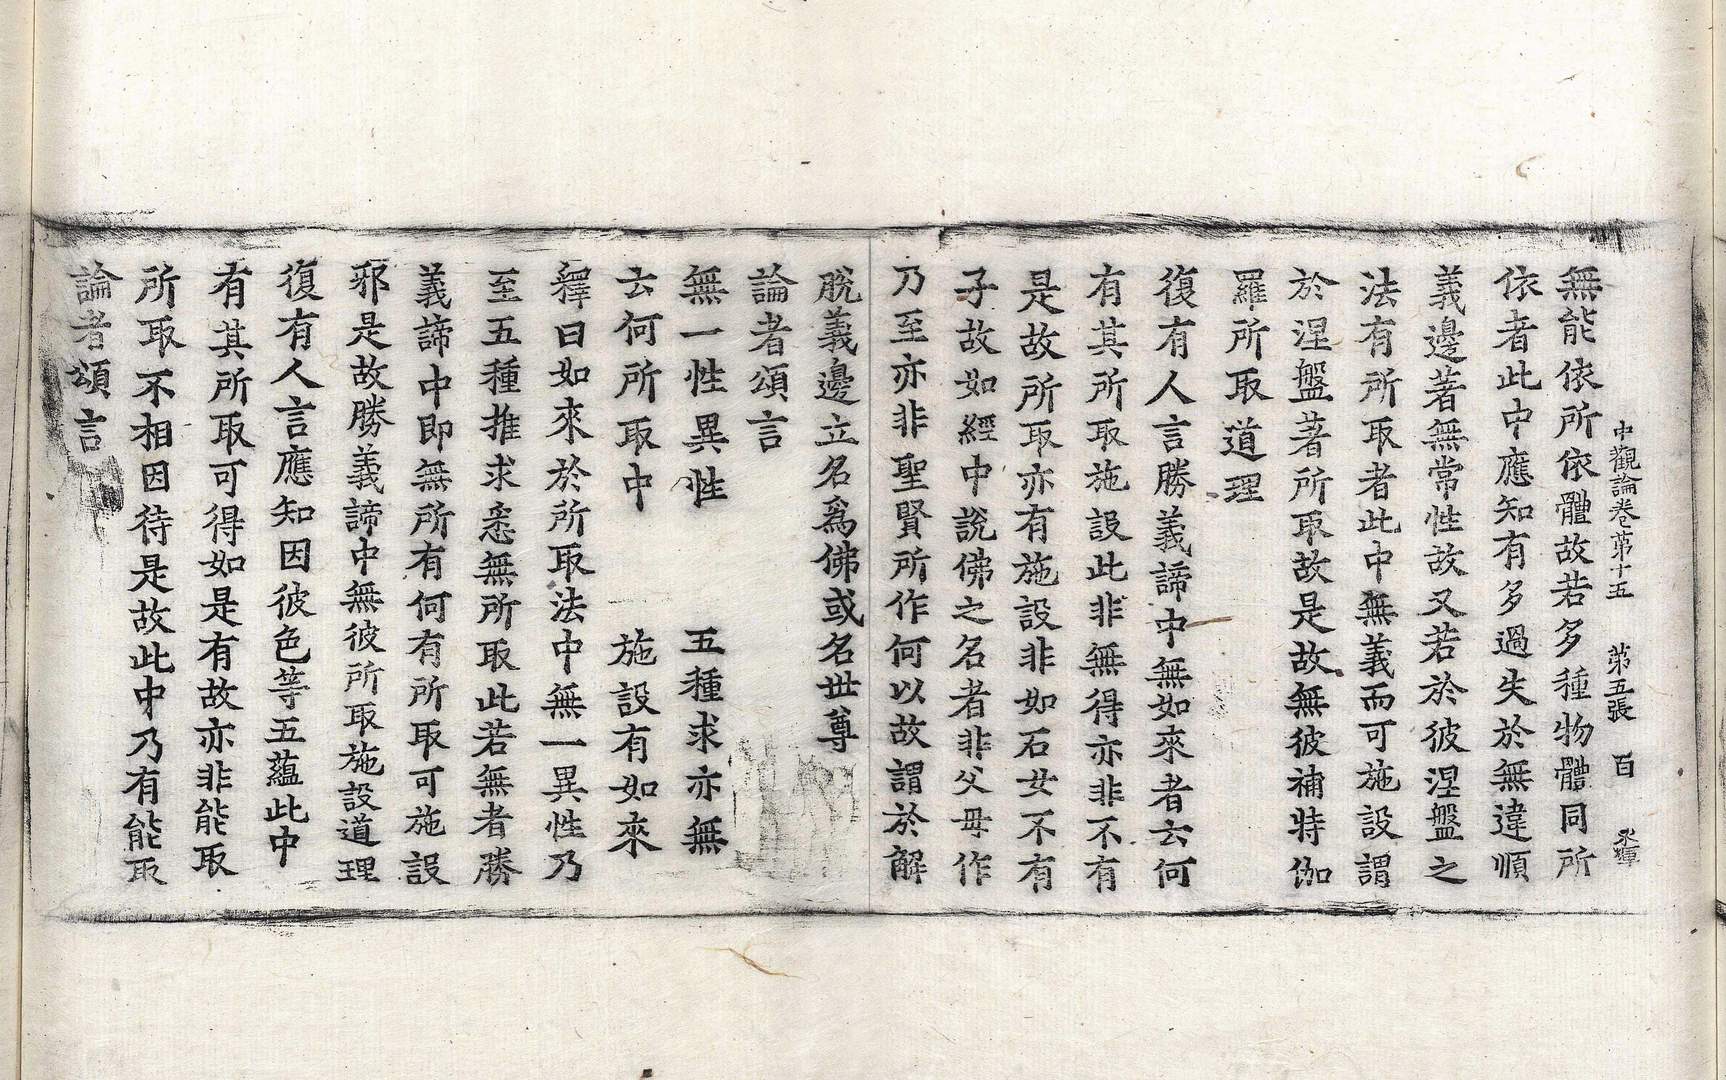 中觀論卷苐十五　苐五張　百
無能依所依體故若多種物體同所
依者此中應知有多過失於無違順
義邊著無常性故又若於彼涅盤之
法有所取者此中無義而可施設謂
於涅盤著所取故是故無彼補特伽
羅所取道理
復有人言勝義諦中無如來者云何
有其所取施設此非無得亦非不有
是故所取亦有施設非如石女不有
子故如經中說佛之名者非父母作
乃至亦非聖賢所作何以故謂於解
脫義邊立名爲佛或名世尊
論者頌言
無一性異性　五種求亦無
云何所取中　施設有如來
釋曰如來於所取法中無一異性乃
至五種推求悉無所取此若無者勝
義諦中即無所有何有所取可施設
邪是故勝義諦中無彼所取施設道理
復有人言應知因彼色等五蘊此中
有其所取可得如是有故亦非能取
所取不相因待是故此中乃有能取
論者頌言